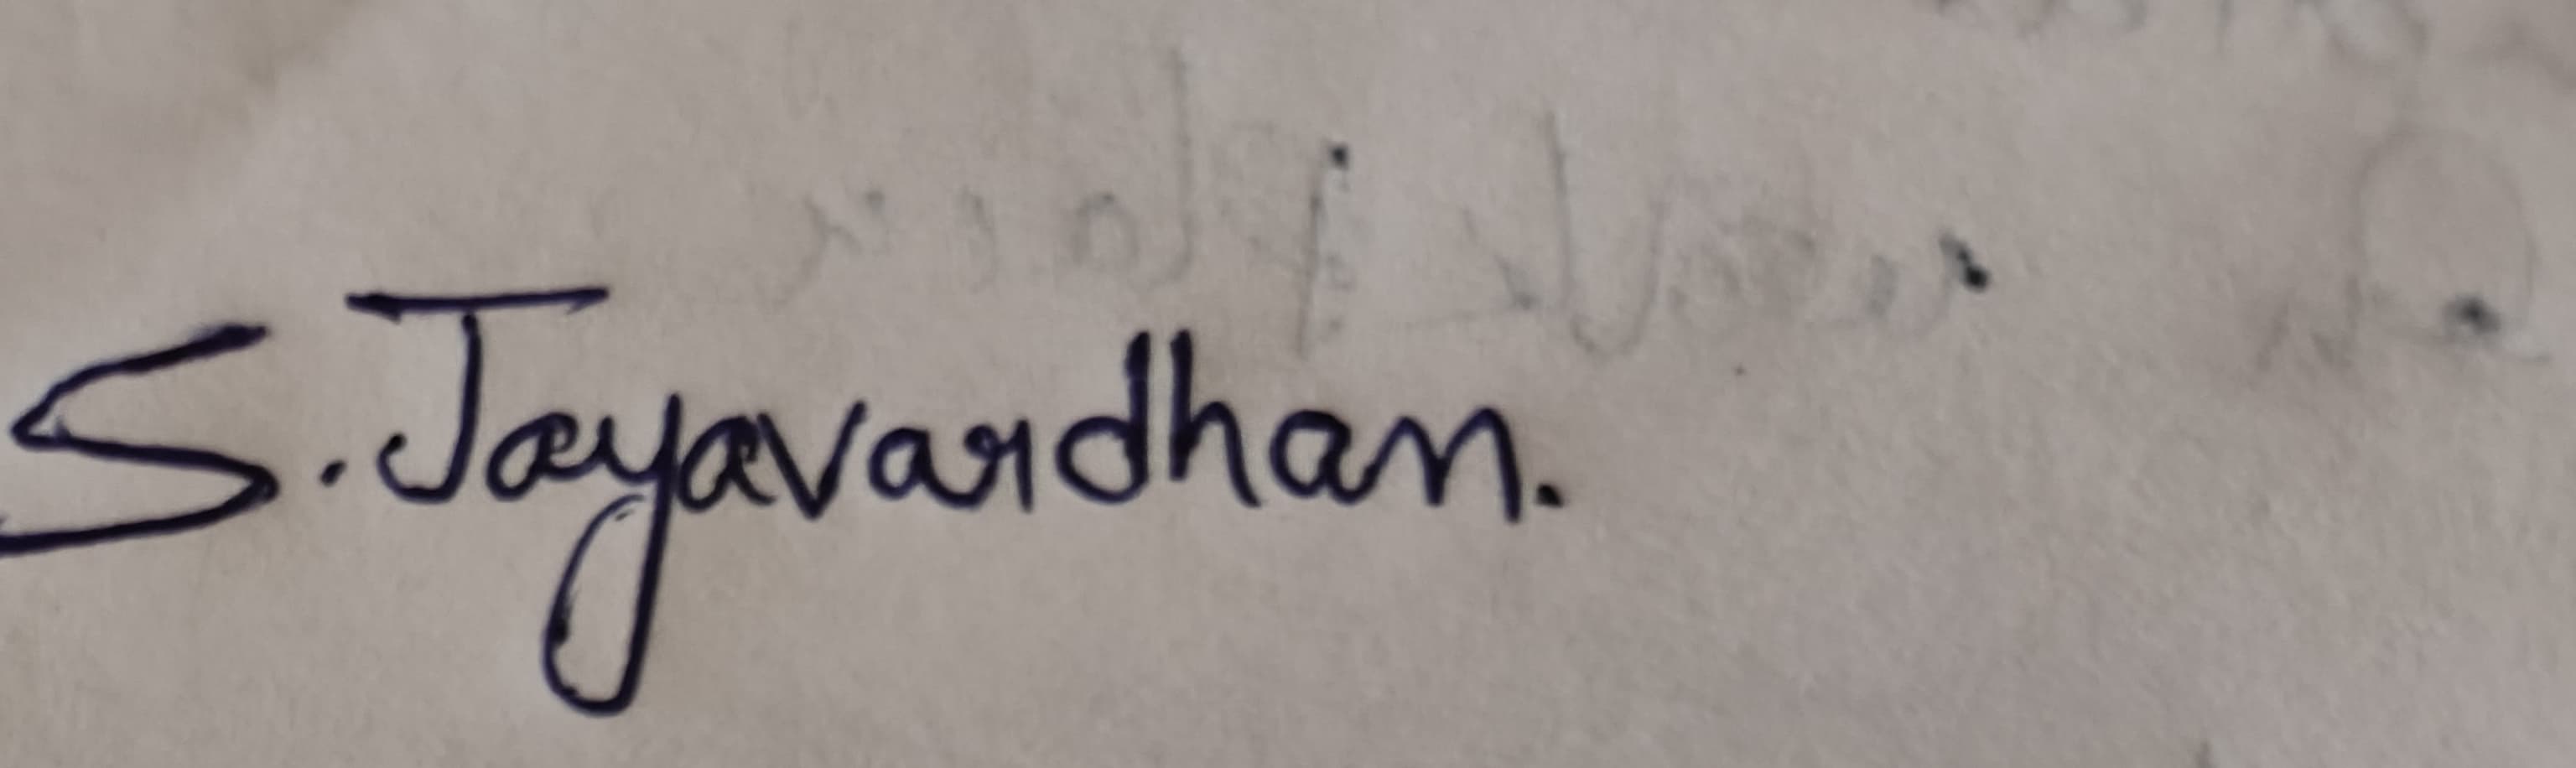 S. Jayavardhan.